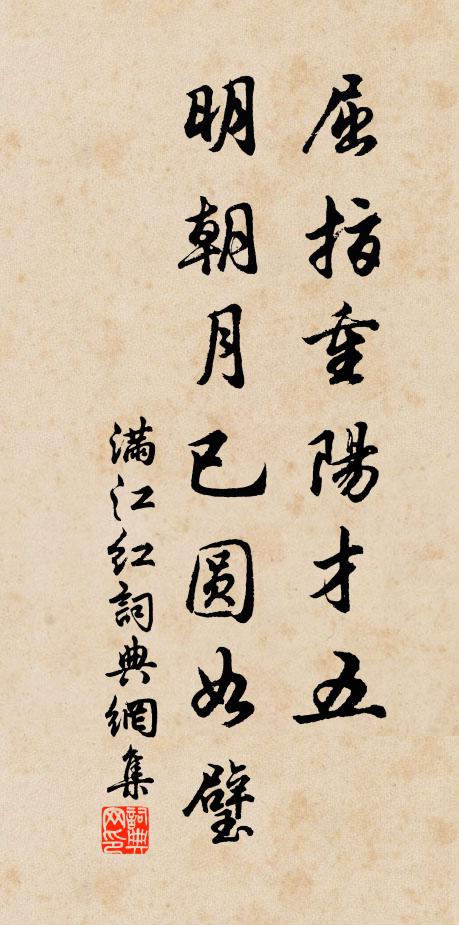 屈指重陽才五
明朝月已圓如璧
滿江紅詞典網集
詞典网印